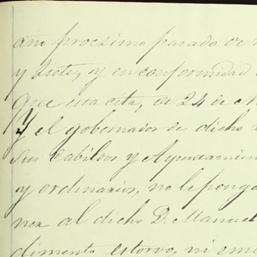 año procsimo pasado de
y siete, y en conformidad
que una cita, de 24 de
Y el gobernador de dicho
sus Cabildos y Ayuntamien
y ordinarios, no le ponga
nor al dicho D. Manuel
dimento estorvo, ni em